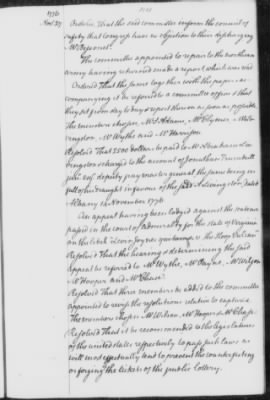 1776
Nov. 27
Ordered, That the said committee inform the council of
safety that Congress have no objection to their discharging
Mr
The committee appointed to repair to the northern
army having returned made a report which was read
Ordered That the same together with the papers ac-
companying it be referred to a committee of five & that
they sit from day to day & report thereon as soon as possible
the members chosen, Mr. S Adams, Mr Clymer, Mr
Mr Wythe and Mr Harrison
Resolved That 2500 dollars be paid to Mr Abraham Li-
vingston & charged to the account of Jonathan Trumbull
junr. esqr. deputy pay master general the same being in
full of his draught in favour of the said A Livingston dated
Albany 12 November 1776.
An appeal having been lodged against the sentence
passed in the court of admiralty for the state of Virginia
on the libel
Resolved That the hearing & determining the said
appeal be referred to Mr Wythe, Mr Paine, Mr Wilson
Mr Hooper and Mr Chase.
Resolved That three members be added to the committee
appointed to revise the resolutions relative to captures
The members chosen Mr Wilson, Mr Hooper & Mr Chase
Resolved That it be recommended to the legislatures
of the united states respectively to pass such laws as
will most effectually tend to prevent the counterfeiting
or forging the tickets of the public lottery.